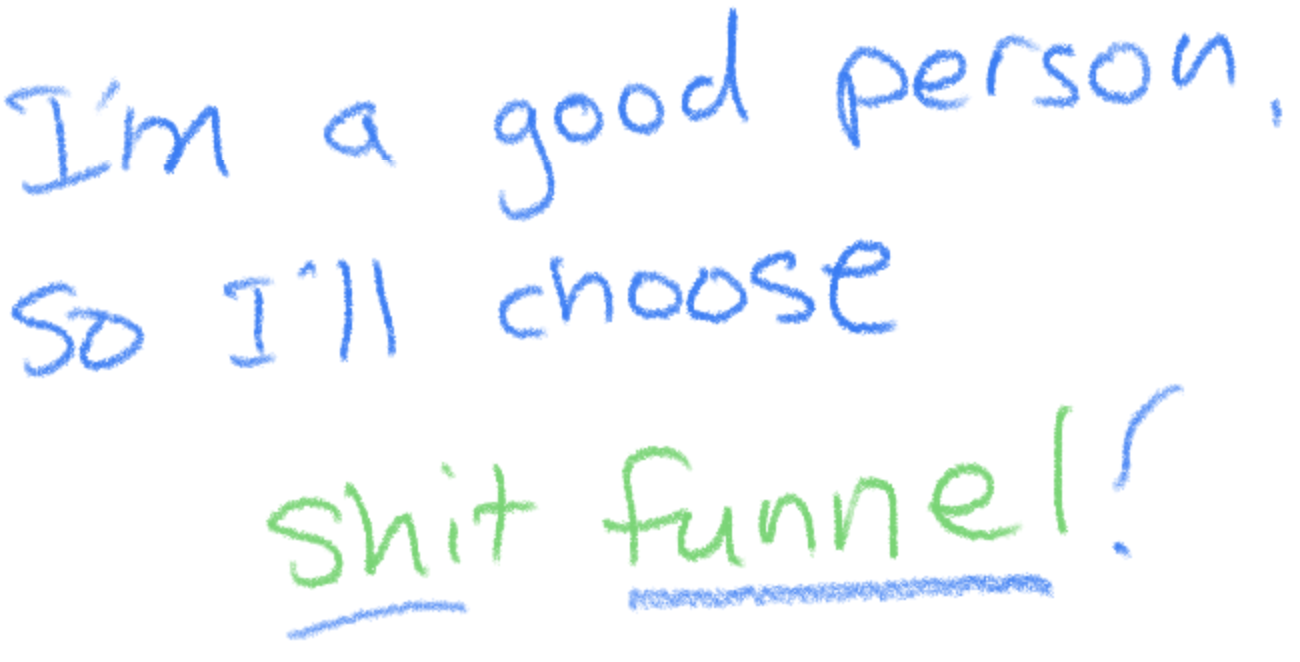 I'm a good person,
So I'll choose
shit funnel!